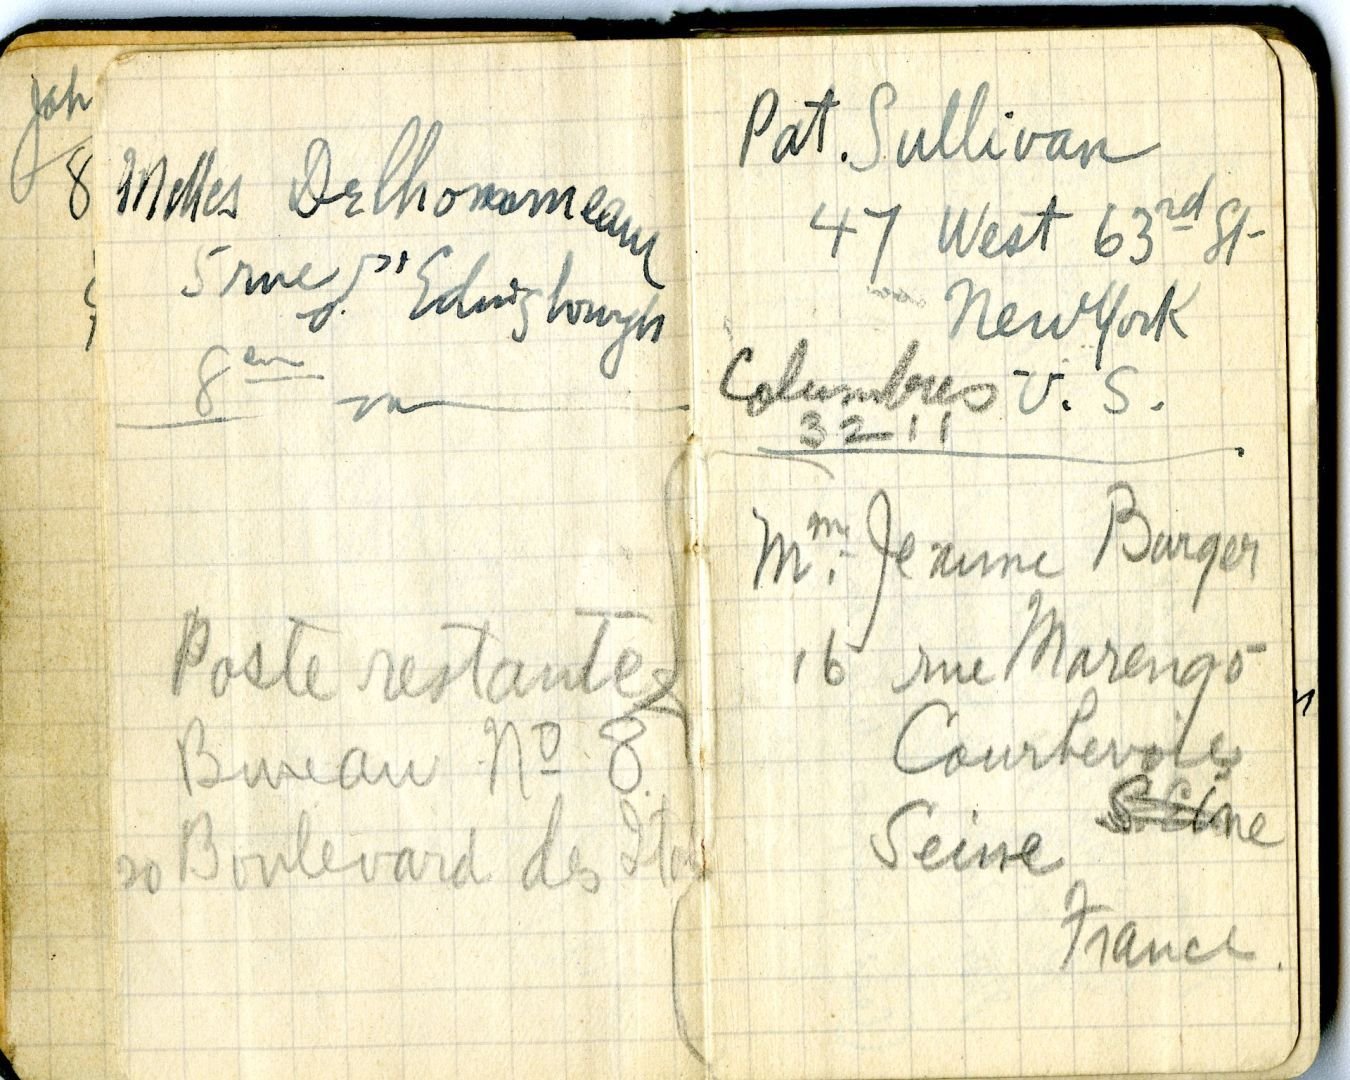 Joh
8
Melles Delhommeau
5 rue d' Edingbourgh
8em
Poste restante
Bureau No 8.
20 Boulevard des Ital
Pat. Sullivan
47 West 63rd St-
New York
Columbres U. S.
32-11
Mme. Jeanne Barger
16 rue Marengo
Courbevoie
Seine
Seine
France.